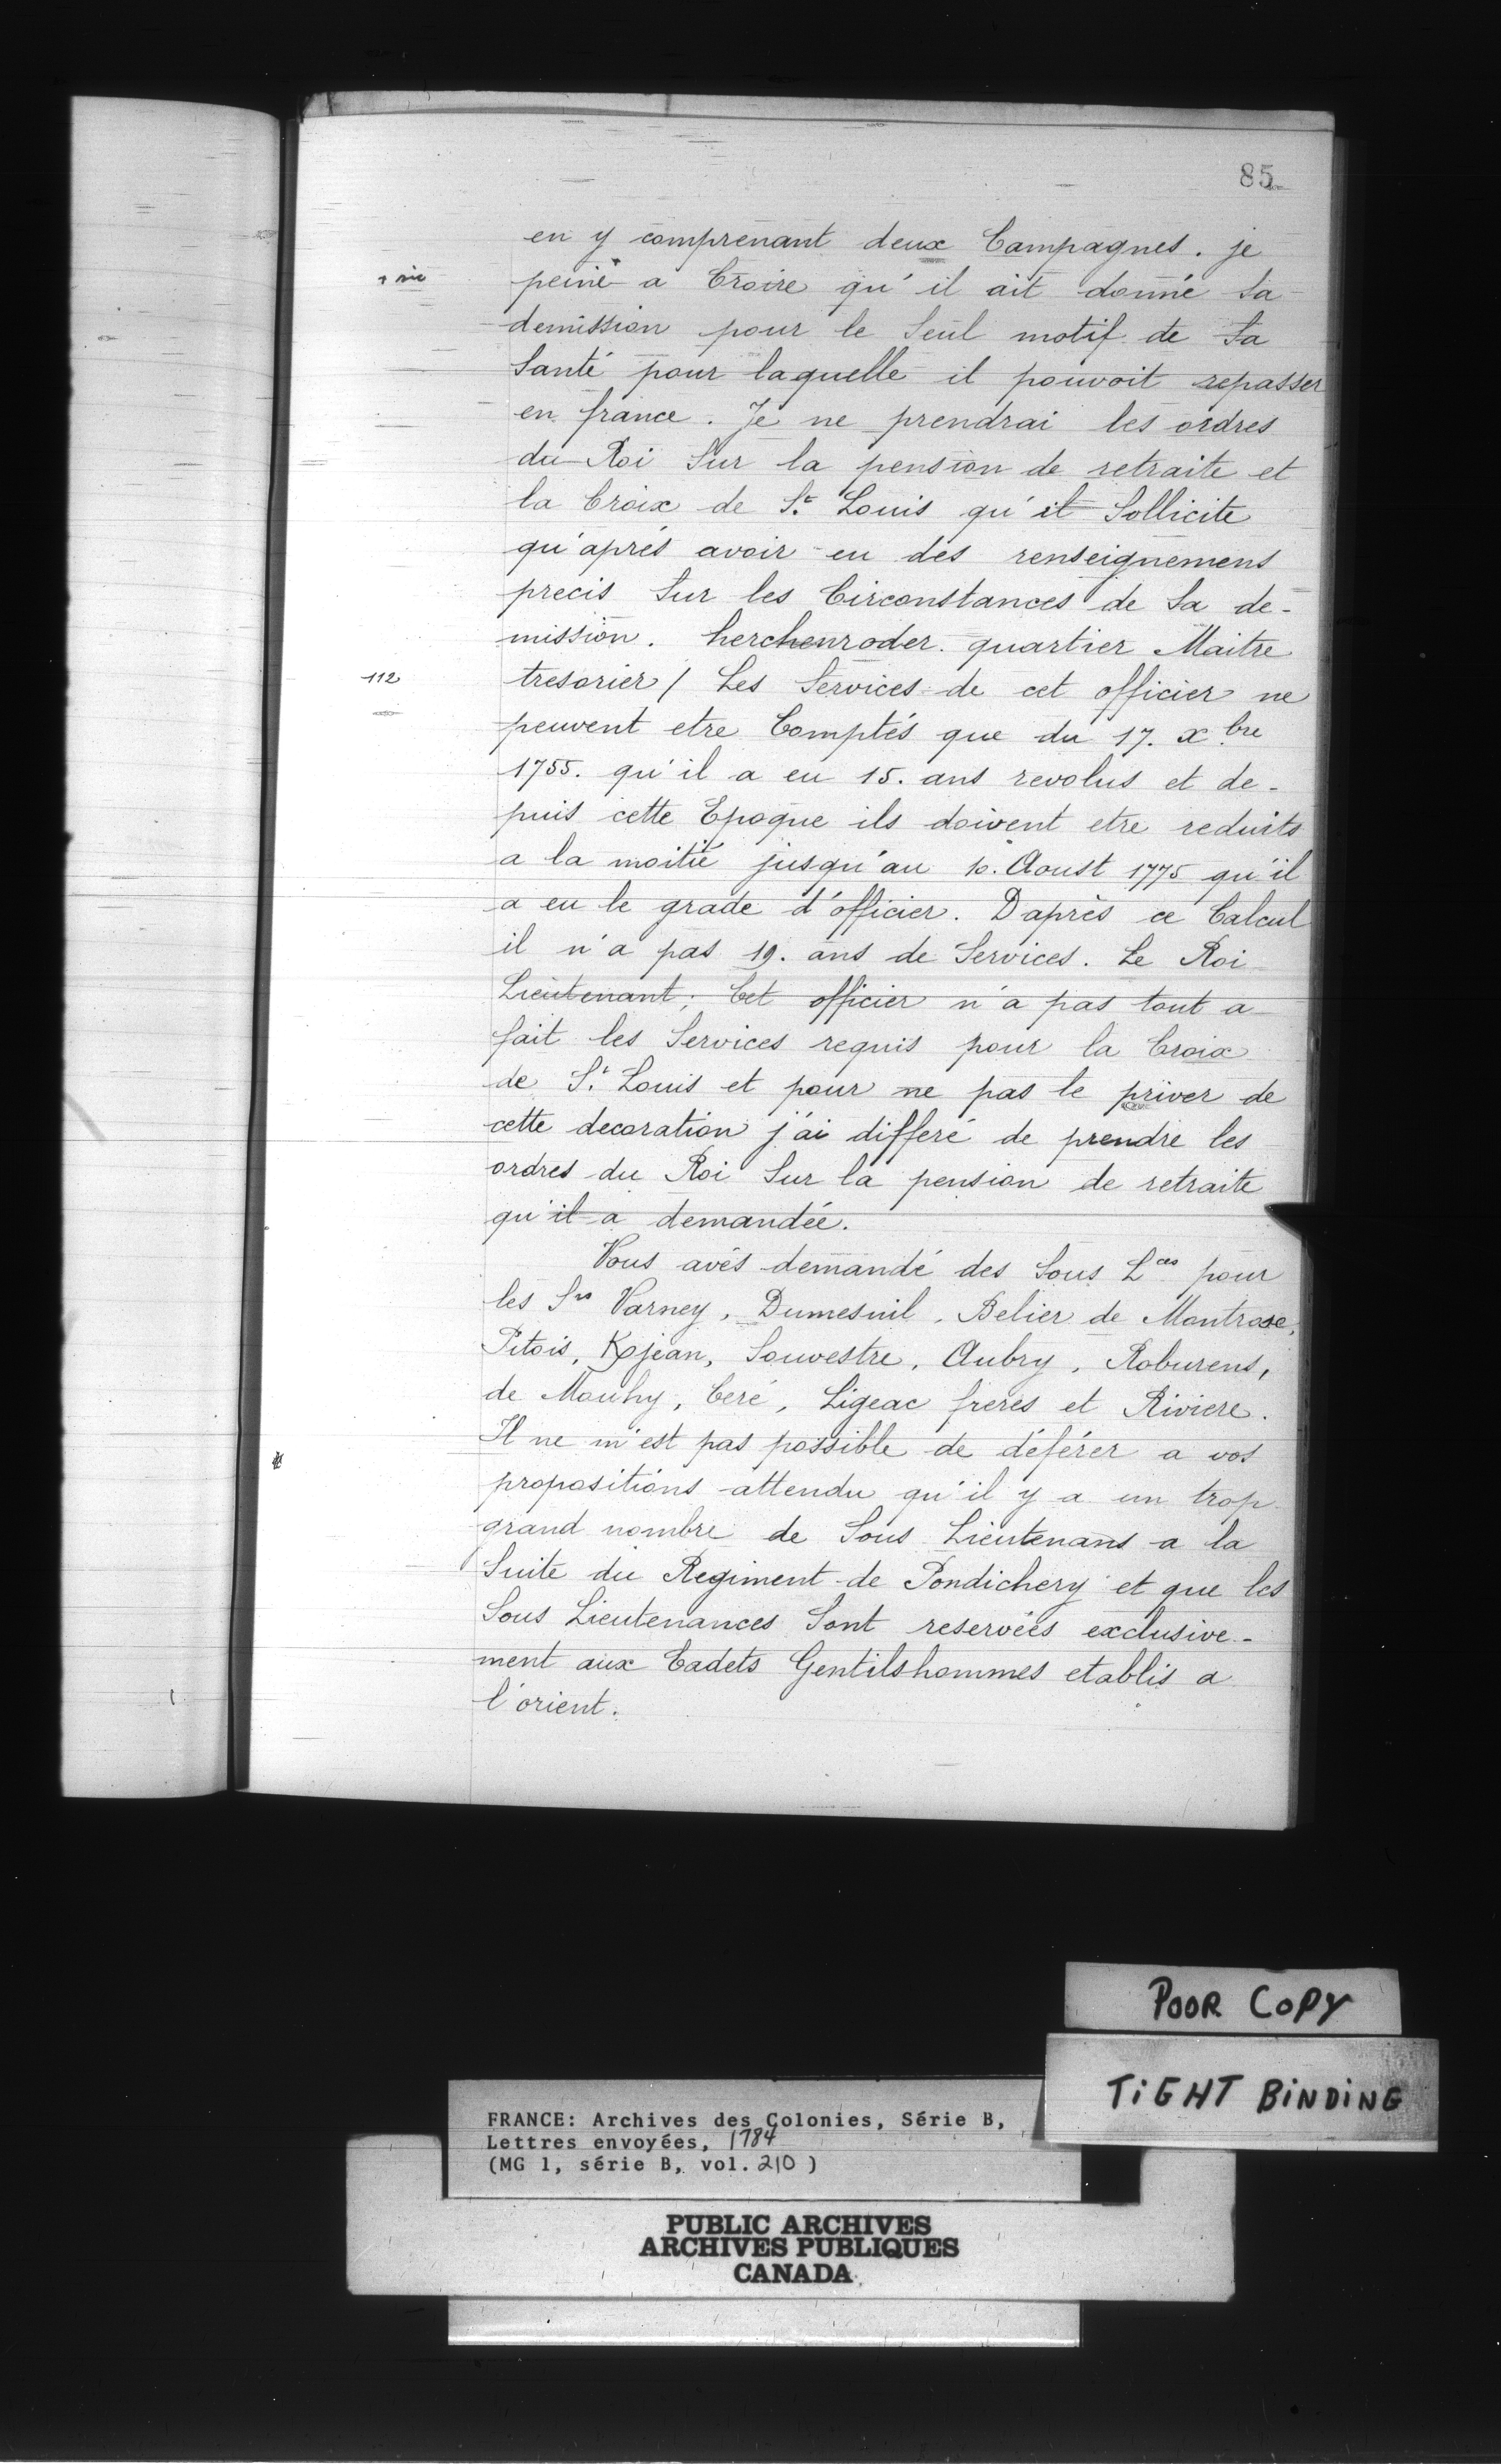 85
en y comprenant deux Campagnes. je
+ sic
peine+ a Croire qu'il ait donné sa
demission pour le Seul motif de sa
Santé pour laquelle il pouvoit repasser
en france. Je ne prendrai les ordres
du Roi Sur la pension de retraite et
la Croix de St. Louis qu'il Sollicite
qu'après avoir eu des renseignemens
precis Sur les Circonstances de Sa de-
mission. herchenroder. quartier Maitre
112
tresorier / Les Services de cet officier ne
peuvent etre Comptés que du 17. xbre
1755. qu'il a eu 15. ans revolus et de-
puis cette Epoque ils doivent etre reduits
a la moitié jusqu'au 10. Aoust 1775 qu'il
a eu le grade d'officier. D'après ce Calcul
il n'a pas 19. ans de Services. Le Roi
Lieutenant; Cet officier n'a pas tout a
fait les Services requis pour la Croix
de St. Louis et pour ne pas le priver de
cette decoration j'ai differé de prendre les
ordres du Roi Sur la pension de retraite
qu'il a demandée.
Vous avés demandé des Sous Lces pour
les Srs Varney, Dumesnil, Belier de Montrose,
Pitois, Kjean, Souvestre, Aubry, Roburens,
de Mouhy, Ceré, Ligeac freres et Riviere.
Il ne m'est pas possible de déférer a vos
propositions attendu qu'il y a un trop
grand nombre de Sous Lieutenans a la
Suite du Regiment de Pondichery et que les
Sous Lieutenances Sont reservées exclusive-
ment aux Cadets Gentilshommes etablis a
l'orient.
POOR COPY
TIGHT BINDING
FRANCE: Archives des Colonies, Série B,
Lettres envoyées, 1784
(MG 1, série B, vol. 210 )
PUBLIC ARCHIVES
ARCHIVES PUBLIQUES
CANADA